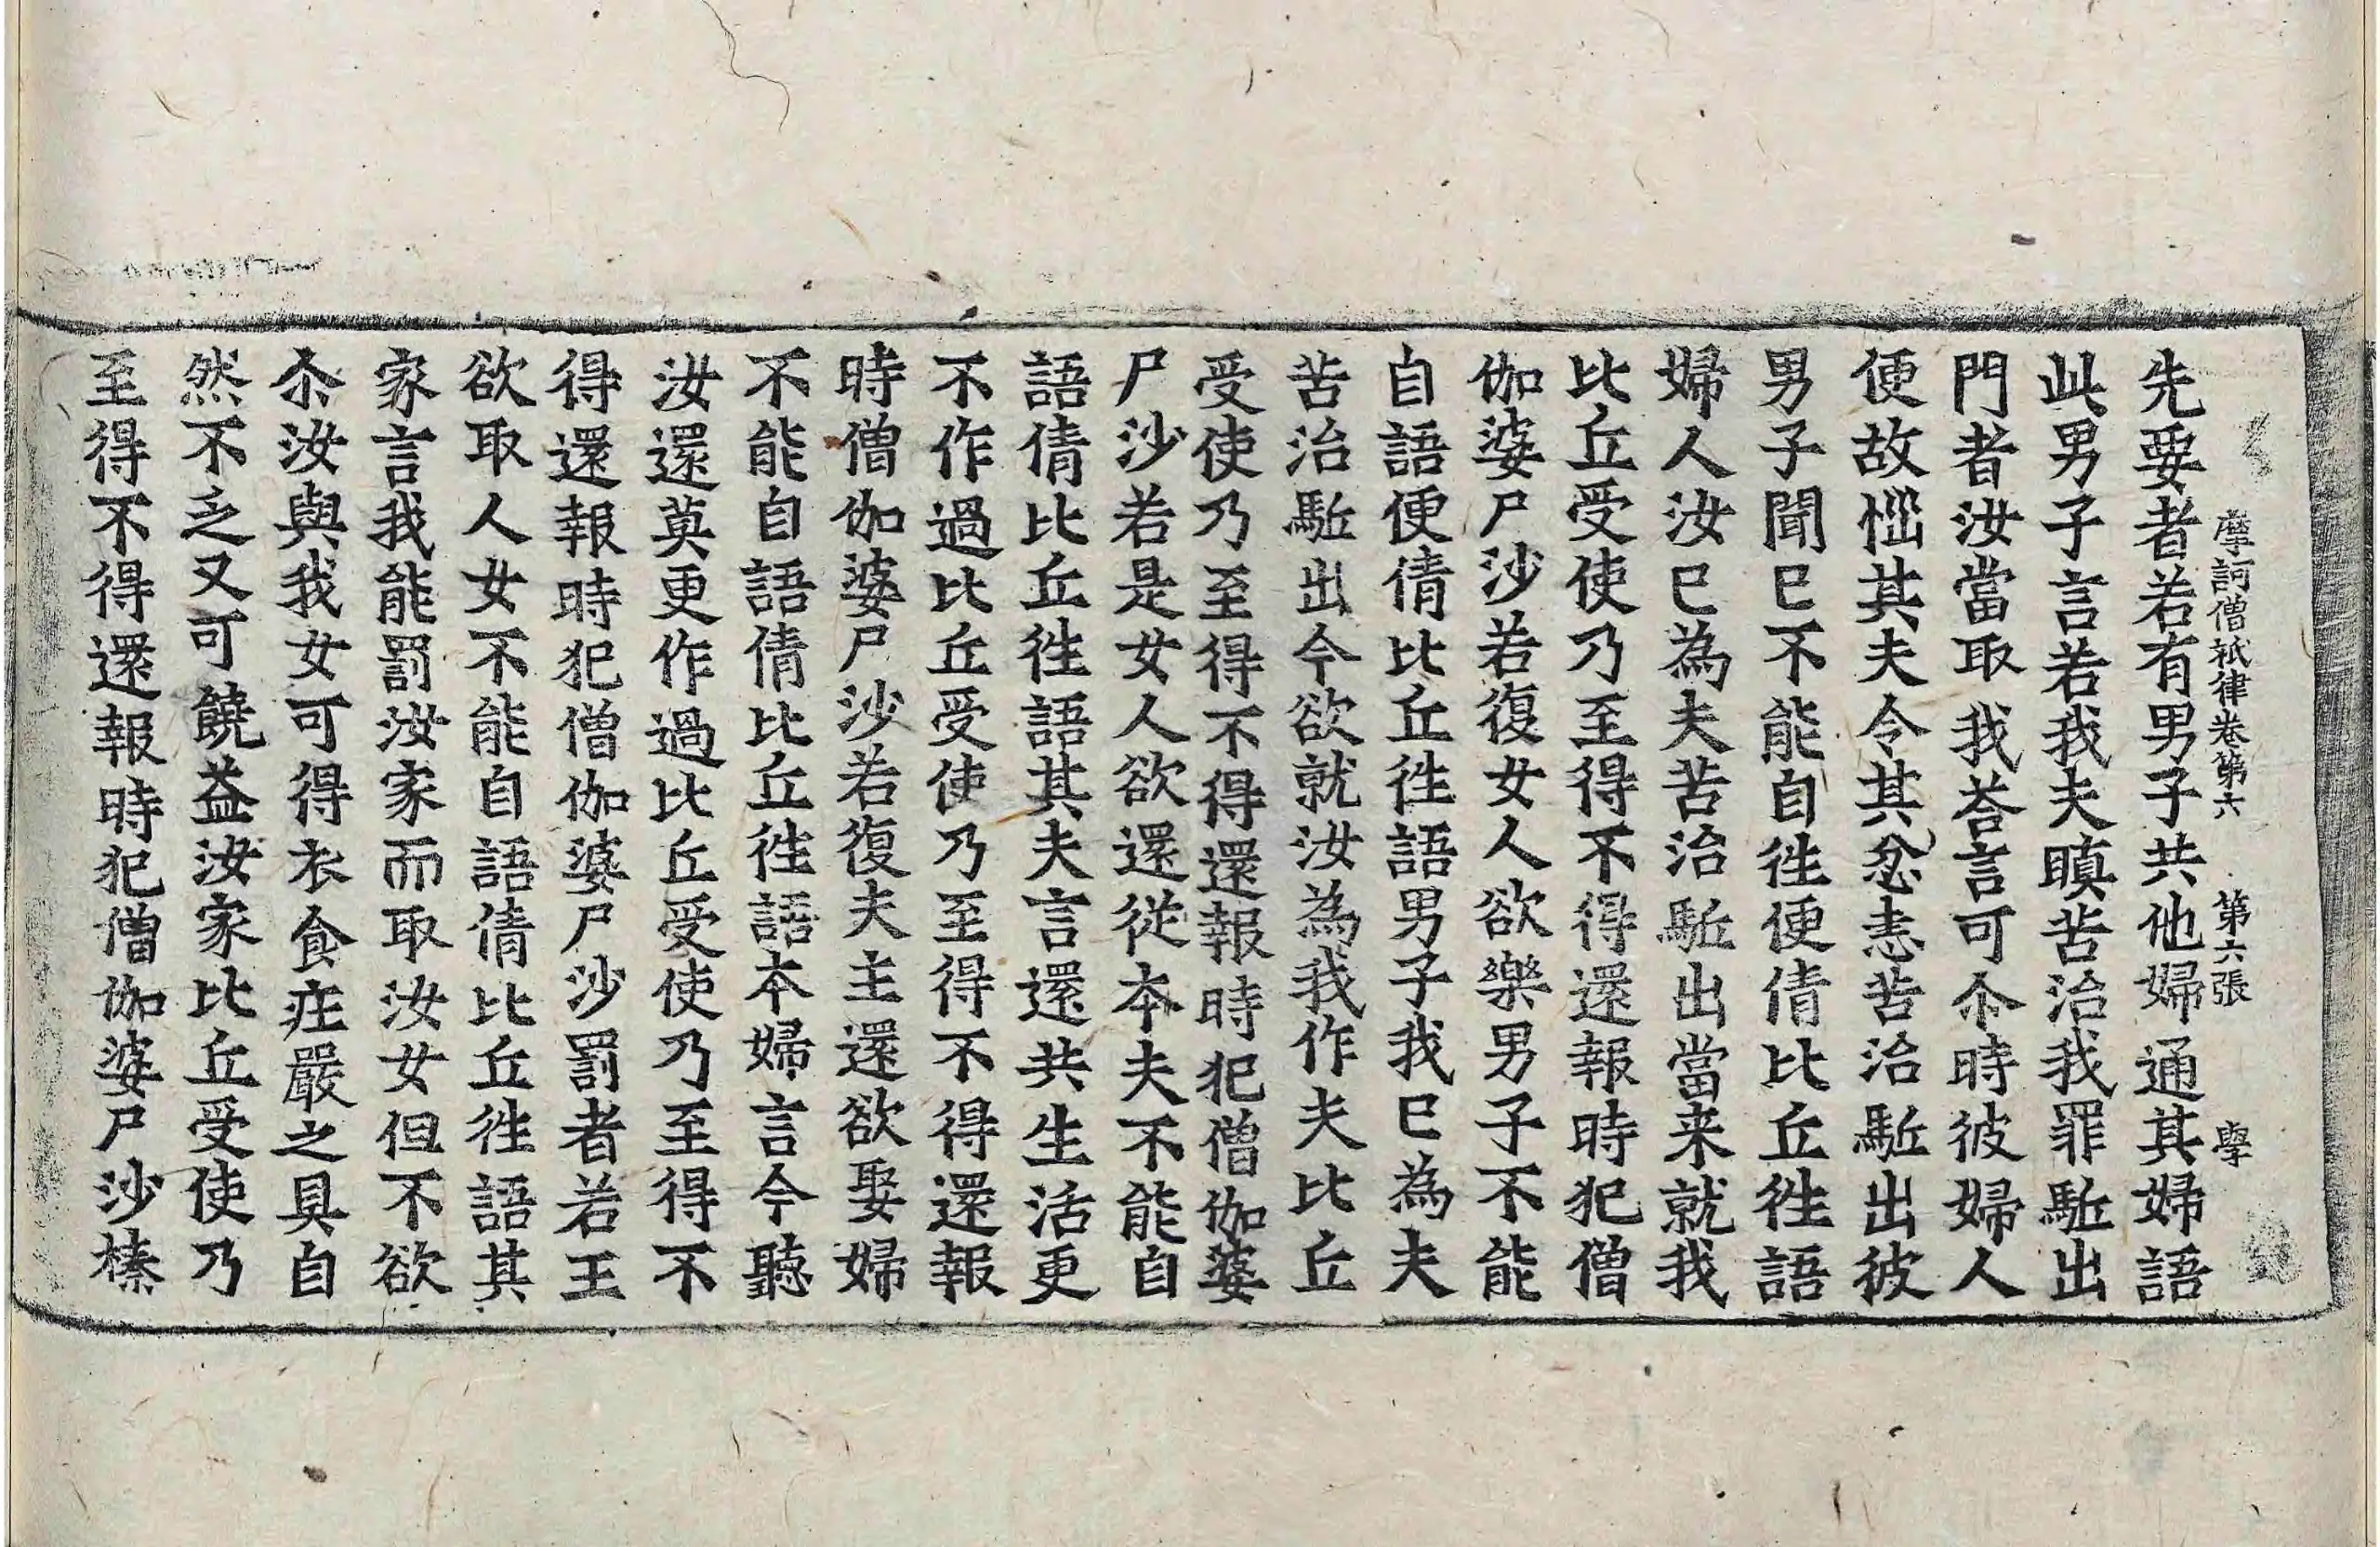 摩訶僧祇律卷第六 第六張 學
先要者若有男子共他婦通其婦語
此男子言若我夫瞋苦治我罪駈出
門者汝當取我荅言可尒時彼婦人
便故惱其夫令其忿恚苦治駈出彼
男子聞已不能自徃便倩比丘徃語
婦人汝已為夫苦治駈出當来就我
比丘受使乃至得不得還報時犯僧
伽婆尸沙若復女人欲樂男子不能
自語便倩比丘徃語男子我已為夫
苦治駈出今欲就汝為我作夫比丘
受使乃至得不得還報時犯僧伽婆
尸沙若是女人欲還從本夫不能自
語倩比丘徃語其夫言還共生活更
不作過比丘受使乃至得不得還報
時僧伽婆尸沙若復夫主還欲娶婦
不能自語倩比丘徃語本婦言今聽
汝還莫更作過比丘受使乃至得不
得還報時犯僧伽婆尸沙罰者若王
欲取人女不能自語倩比丘徃語其
家言我能罰汝家而取汝女但不欲
尒汝與我女可得衣食疘嚴之具自
然不乏又可饒益汝家比丘受使乃
至得不得還報時犯僧伽婆尸沙榛